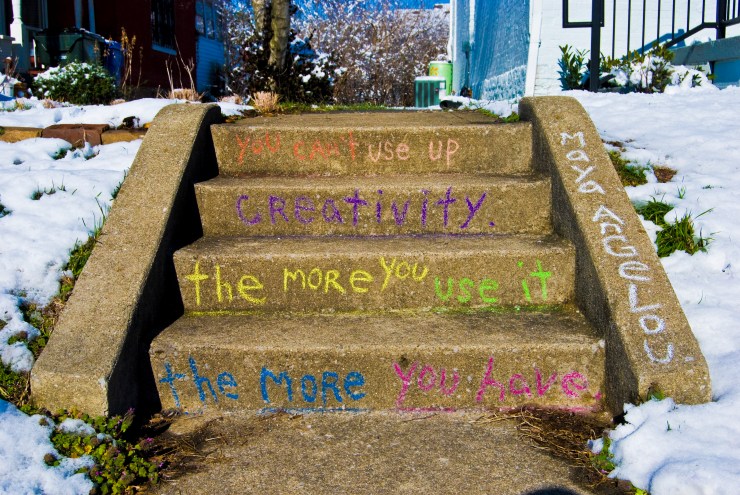 you can't use up
creativity.
the more you use it
the more you have.
Maya Angelou